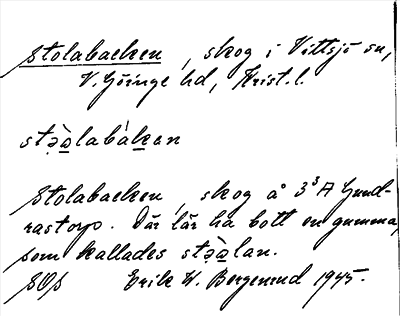 Stolabacken, skog i Vittsjö sn,
V. Göinge hd, Krist. l.
stə̀ɷlabákan
Stolabacken, skog å 3³ A Gund-
rastorp. Där lär ha bott en gumma,
som kallades stə̀ɷlan.
SOs Erik W. Bergenud 1945.